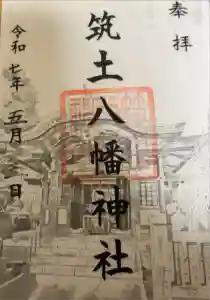 奉拝
筑土八幡神社
令和七年五月 日